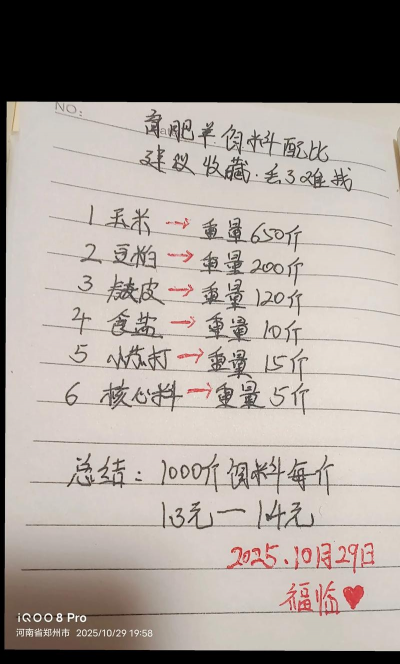 NO:
育肥羊饲料配比
建议收藏.丢了难找
1 玉米 → 重量650斤
2 豆粕 → 重量200斤
3 麸皮 → 重量120斤
4 食盐 → 重量10斤
5 小苏打 → 重量15斤
6 核心料 → 重量5斤
总结: 1000斤饲料每斤
1.3元一1.4元
2025.10月29日
福临♥
iQOO 8 Pro
河南省郑州市 2025/10/29 19:58